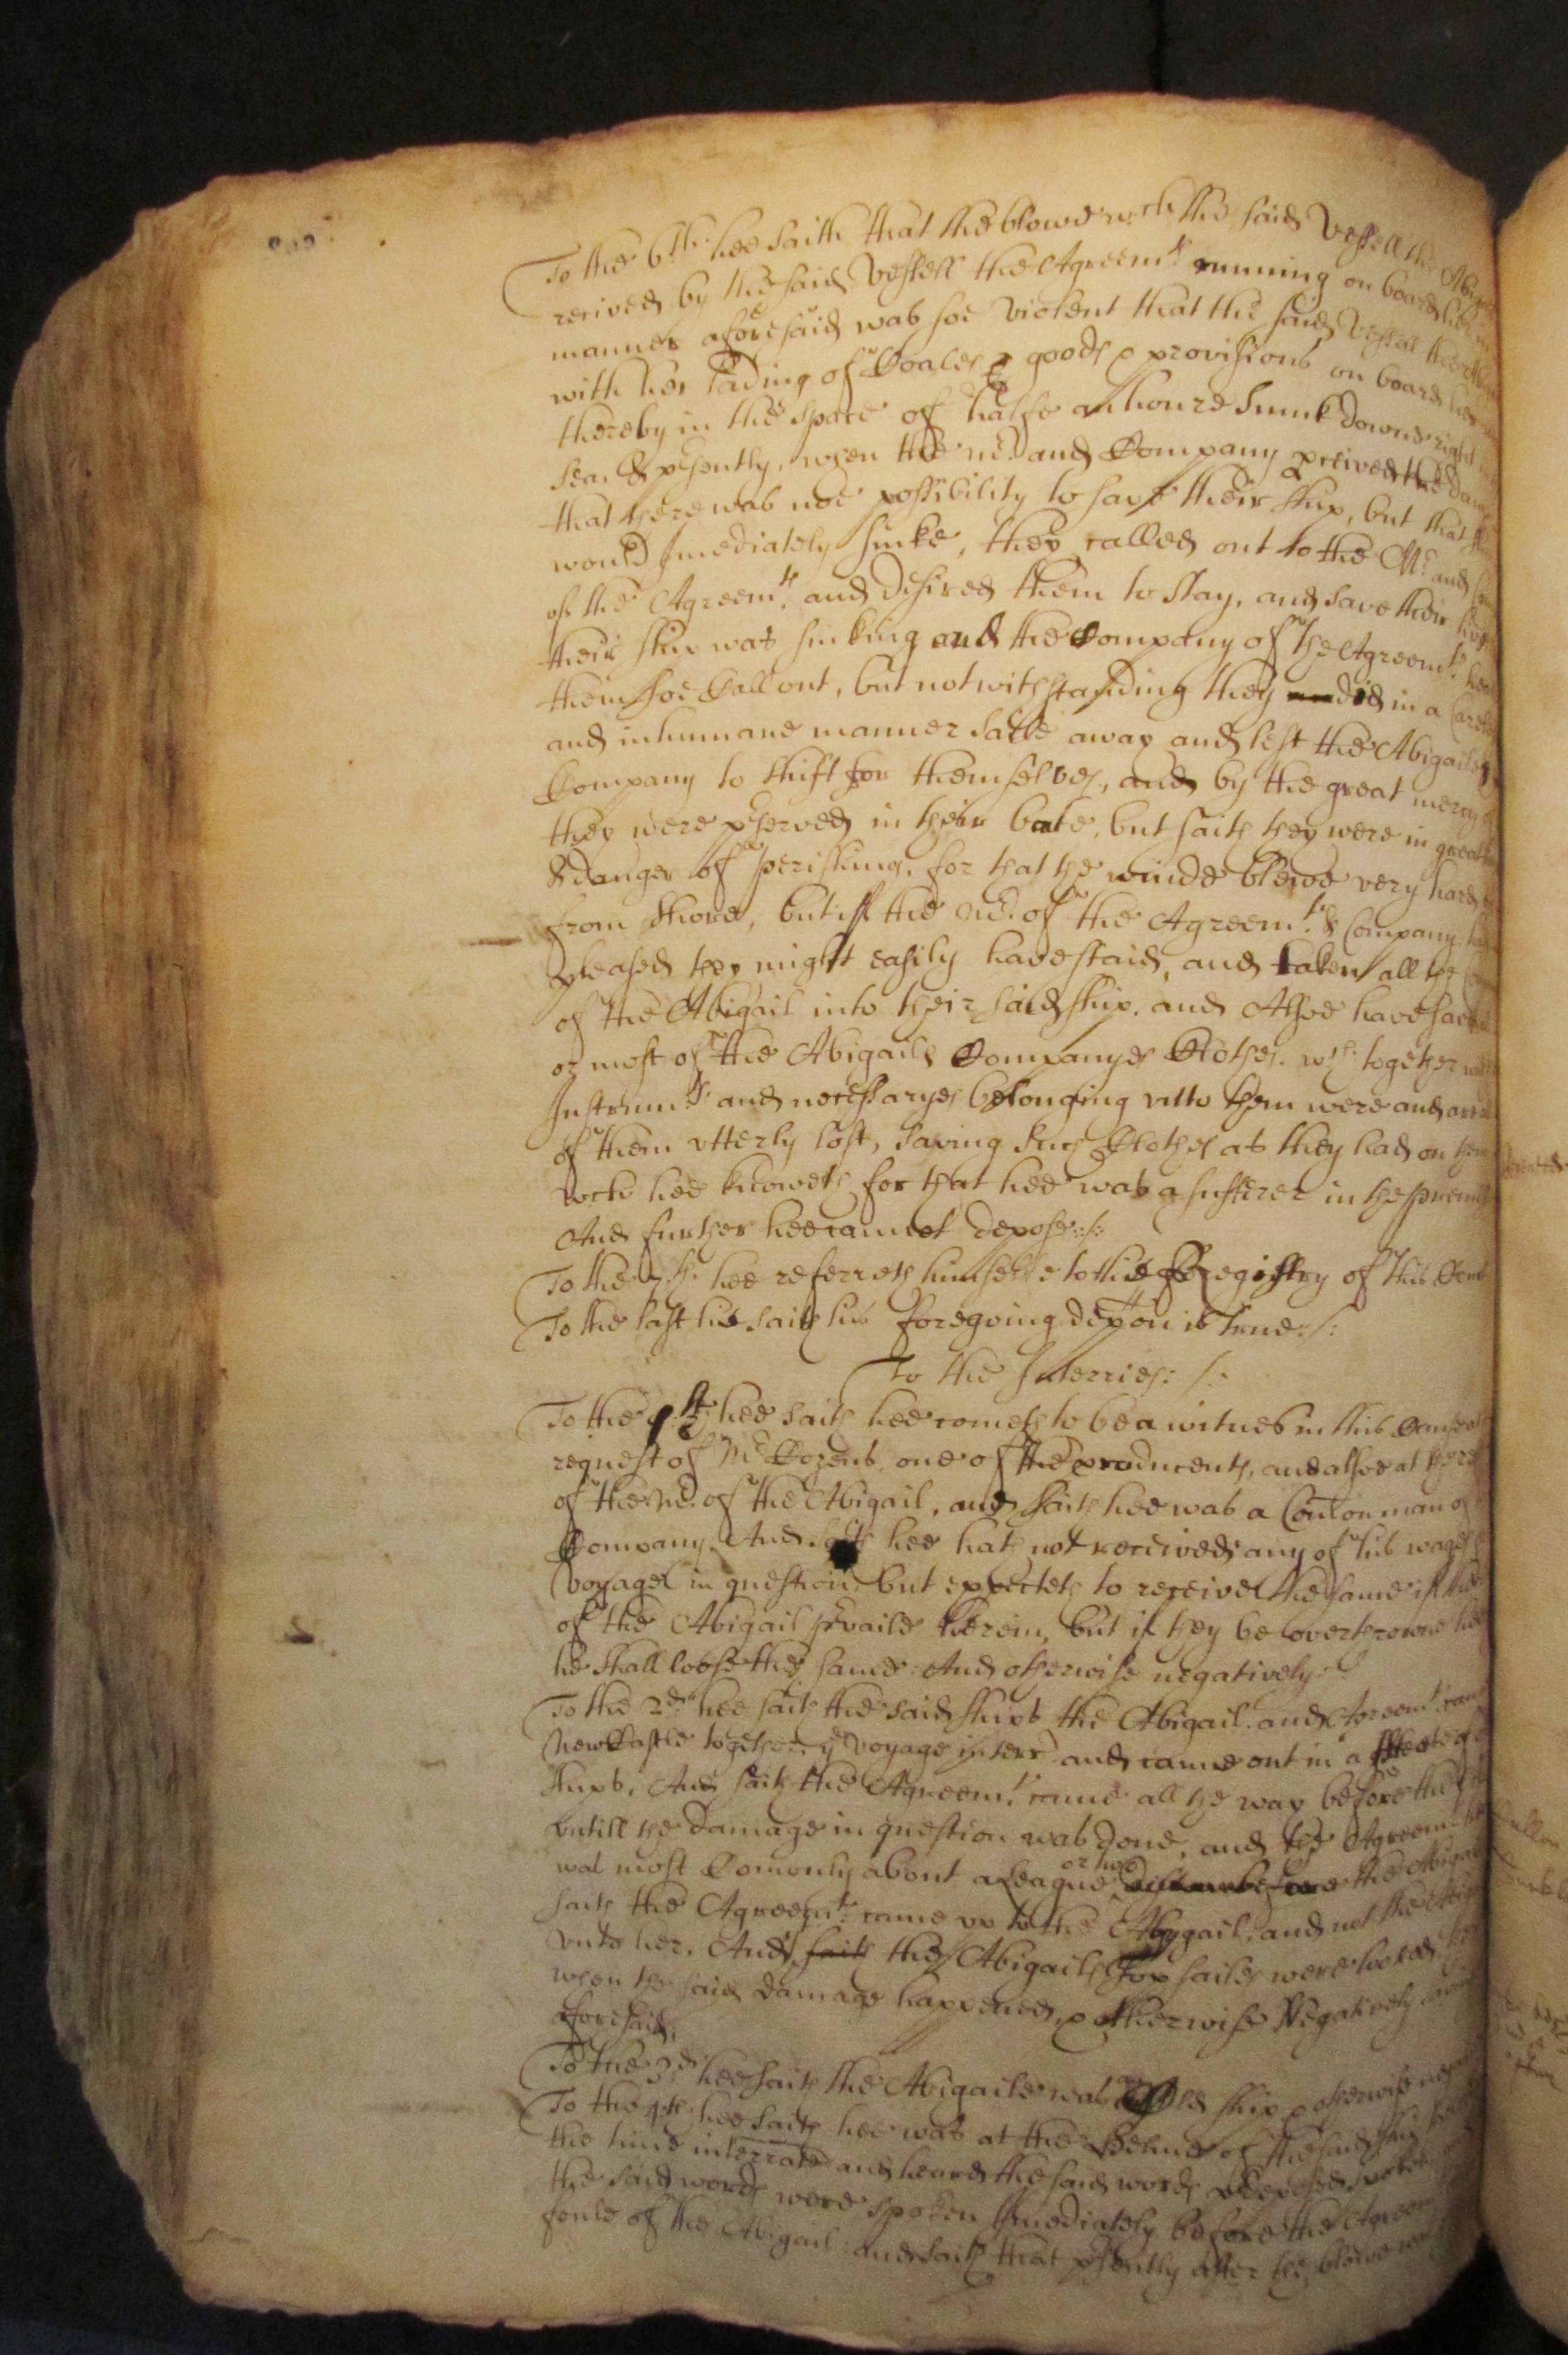 To the 6th. hee saith that the blowe wch the said Vessell the
received by the said Vessell the Agreemt. running on board her in
manner aforesaid was soe violent that the said Vessell the
with her lading of Coales & goods & provisions on board her
thereby in the space of halfe an houre sunk downe right
sea. & psently, when the Mr. and Company pceived the
that there was noe possibility to save their ship, but that
would Imediately sinke, they called out to the Mr. and
of the Agreemt. and desired them to stay, and save their
their ship was sinking and the Company of the Agreemt.
them soe Call out, but notwithstanding they did in a
and inhumane manner saile away and left the Abigails
Company to shift for themselves, and by the great mercy
they were pserved in their bote, but saith they were in great
& danger of perishing, for that the winde blewe very hard
from shore, but if the Mr. of the Agreemt. & Company
pleased they might easily have staid, and taken all the
of the Abigail into their said ship. and Alsoe have saved
or most of the Abigails Companyes Clothes. wch. together
Instrumts. and necessaryes belonging vnto them were and are
of them vtterly lost, saving such Clothes as they had on
wch hee knoweth for that hee was a sufferer in the
And further hee cannot depose:/:
To the 7th. hee referreth himselfe to the Registry of this Court
To the last he saith his foregoing depon is true:/:
To the Interries: /:
To the 1st. hee saith hee cometh to be a witnes in this Cause
request of Mr Cozens one of the producents, and alsoe at the
of the Mr. of the Abigail, and saith hee was a Comon man of
Company. And saith hee hath not received any of his wages
voyage in question, but expecteth to receive the same if the
of the Abigail pvaile herein, but if they be overthrowne
he shall loose the same: And otherwise negatively:
To the 2d. hee saith the said ships the Abigail and Agreemt. came
NewCastle together ye voyage interr: and came out in a fleete of
ships, And saith the Agreemt. came all the way before the
vntill the damage in question was done, and the Agreemt.
was most Comonly about a league or two before the Abigail
saith the Agreemt. came vp to the Abygail, and not the
vnto her, And saith the Abigails Top sailes were
when the said damage happened, & otherwise Negatively
aforesaid.
To the 3d. hee saith the Abigaile was old ship & otherwise
To the 4th hee saith hee was at the Helme of the said ship
the time interrate and heard the said words pdeposed spoken
the said words were spoken Imediately before the Agreemt
foule of the Abigail and saith that psently after the blowe